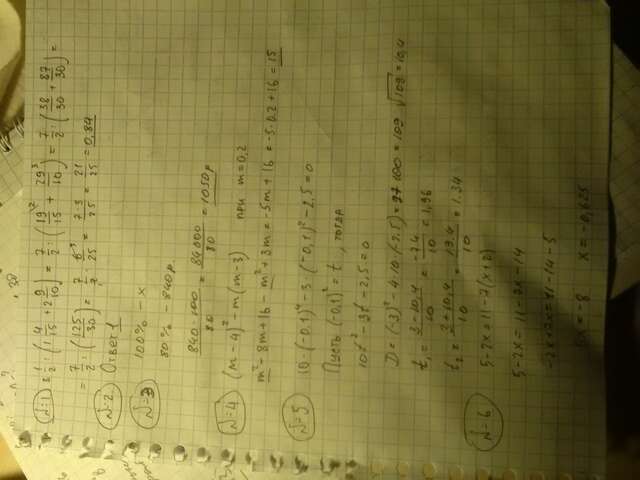 №1 3 1/2 : (1 4/15 + 2 9/10) = 7/2 : (19/15 + 29/10) = 7/2 : (38/30 + 87/30) =
= 7/2 : (125/30) = 7/2 · 6/25 = 7·3/25 = 21/25 = 0,84
№2 Ответ 1
№3 100% – x
80% – 840 р.
840·100/80 = 84000/80 = 1050 р
№4 (m-4)² - m(m-3) при m=0,2
m² - 8m + 16 - m² + 3m = -5m + 16 = -5·0.2 + 16 = 15
№5 10·(-0,1)⁴ - 3·(-0,1)² - 2,5 = 0
Пусть (-0,1)² = t, тогда
10t² - 3t - 2,5 = 0
D = (-3)² - 4·10·(-2,5) = 9+100 = 109 √109 = 10,4
t₁ = 3-10,4/10 = -7.4/10 = 1,96
t₂ = 3+10,4/10 = 13,4/10 = 1.34
№6 5-2x = 11-7(x+2)
5-2x = 11-7x-14
-2x+7x = 11-14-5
5x = -8 x = -0,625